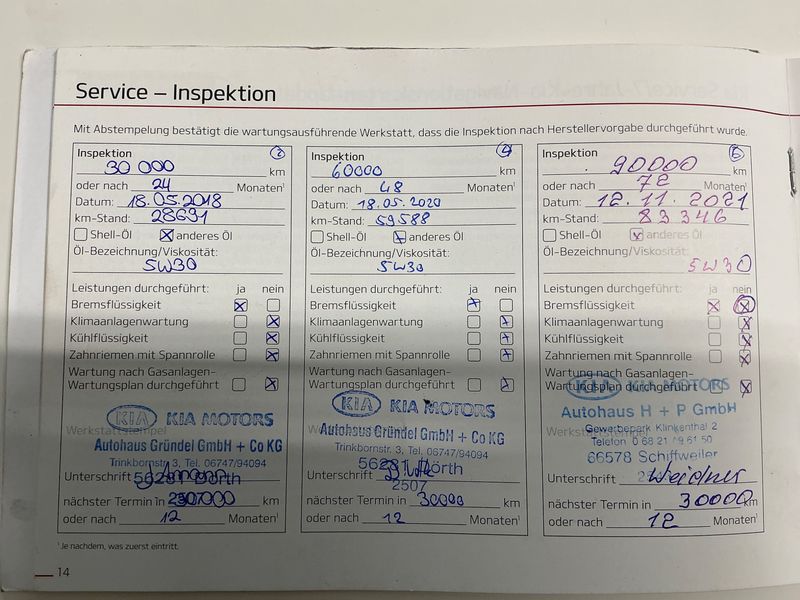 Service – Inspektion
Mit Abstempelung bestätigt die wartungsausführende Werkstatt, dass die Inspektion nach Herstellervorgabe durchgeführt wurde.
Inspektion 2
30 000 km
oder nach 24 Monaten¹
Datum: 18.05.2018
km-Stand: 28691
Shell-Öl anderes Öl
Öl-Bezeichnung/Viskosität:
5W30
Leistungen durchgeführt: ja nein
Bremsflüssigkeit
Klimaanlagenwartung
Kühlflüssigkeit
Zahnriemen mit Spannrolle
Wartung nach Gasanlagen-
Wartungsplan durchgeführt
KIA KIA MOTORS
Werkstattstempel
Autohaus Gründel GmbH + Co KG
Trinkbornstr. 3, Tel. 06747/94094
Unterschrift
56281 Dörth
nächster Termin in km
oder nach 12 Monaten¹
Inspektion 4
60000 km
oder nach 48 Monaten¹
Datum: 18.05.2020
km-Stand: 59588
Shell-Öl anderes Öl
Öl-Bezeichnung/Viskosität:
5W30
Leistungen durchgeführt: ja nein
Bremsflüssigkeit
Klimaanlagenwartung
Kühlflüssigkeit
Zahnriemen mit Spannrolle
Wartung nach Gasanlagen-
Wartungsplan durchgeführt
KIA KIA MOTORS
Autohaus Gründel GmbH + Co KG
Trinkbornstr. 3, Tel. 06747/94094
56281 Dörth
Unterschrift
2507
nächster Termin in 30000 km
oder nach 12 Monaten¹
Inspektion 6
90000 km
oder nach 72 Monaten¹
Datum: 12.11.2021
km-Stand: 83346
Shell-Öl anderes Öl
Öl-Bezeichnung/Viskosität:
5W30
Leistungen durchgeführt: ja nein
Bremsflüssigkeit
Klimaanlagenwartung
Kühlflüssigkeit
Zahnriemen mit Spannrolle
Wartung nach Gasanlagen-
Wartungsplan durchgeführt
KIA KIA MOTORS
Autohaus H + P GmbH
Gewerbepark Klinkenthal 2
Werkstattstempel
Telefon 0 68 21
66578 Schiffweiler
Unterschrift Weidner
nächster Termin in 30000 km
oder nach 12 Monaten¹
¹Je nachdem, was zuerst eintritt.
14